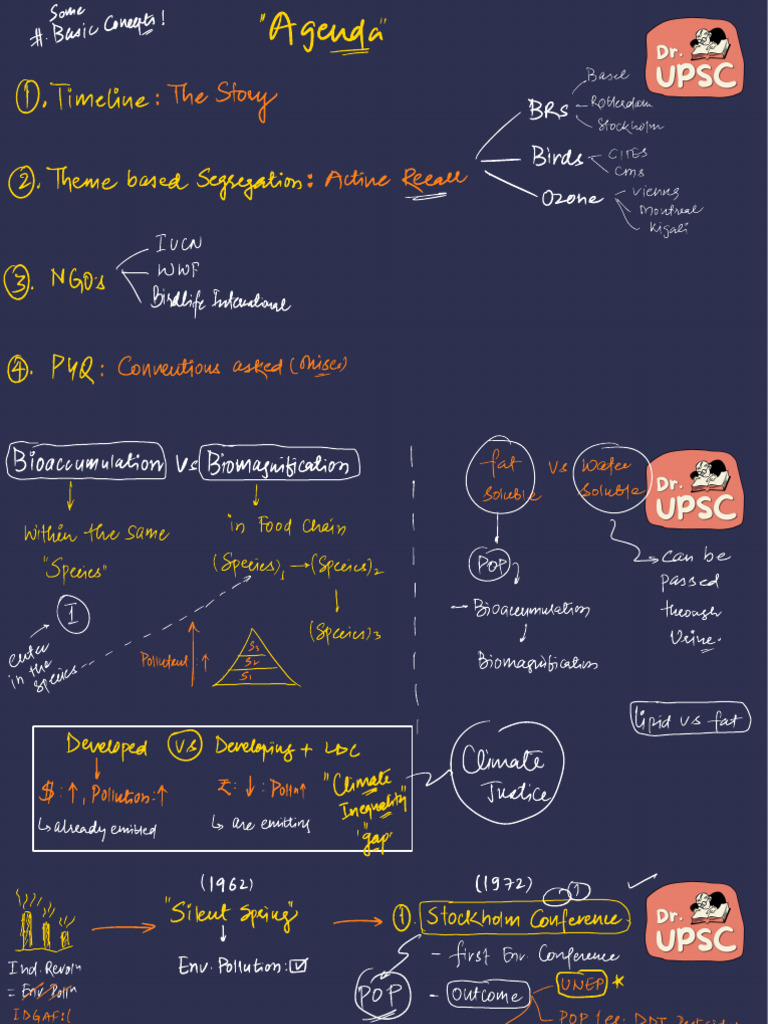 Some
#. Basic Concepts!
"Agenda"
Dr.
UPSC
①. Timeline: The Story
②. Theme based Segregation: Active Recall
BRs
Basel
Rotterdam
Stockholm
Birds
CITES
CMS
Ozone
Vienna
Montreal
Kigali
③. NGOs
IUCN
WWF
Birdlife International
④. PYQ: Conventions asked (Misc)
Bioaccumulation Vs Biomagnification
within the same
"Species"
I
enter
in the
species
in Food Chain
(Species)1 → (Species)2
(Species)3
Pollutant: ↑
S3
S2
S1
fat
soluble
vs
Water
soluble
Dr.
UPSC
POP
- Bioaccumulation
Biomagnification
can be
passed
through
Urine.
lipid vs fat
Developed vs Developing + LDC
$: ↑, Pollution: ↑
↳ already emitted
₹: ↓ : Polln ↑
↳ are emitting
"Climate
Inequality"
"gap"
Climate
Justice
Ind. Revoln
= Env. Polln
IDGAF:(
(1962)
"Silent Spring"
Env. Pollution: ☑
(1972)
1
①. Stockholm Conference
- first Env. Conference
- Outcome
UNEP *
POP
Dr.
UPSC